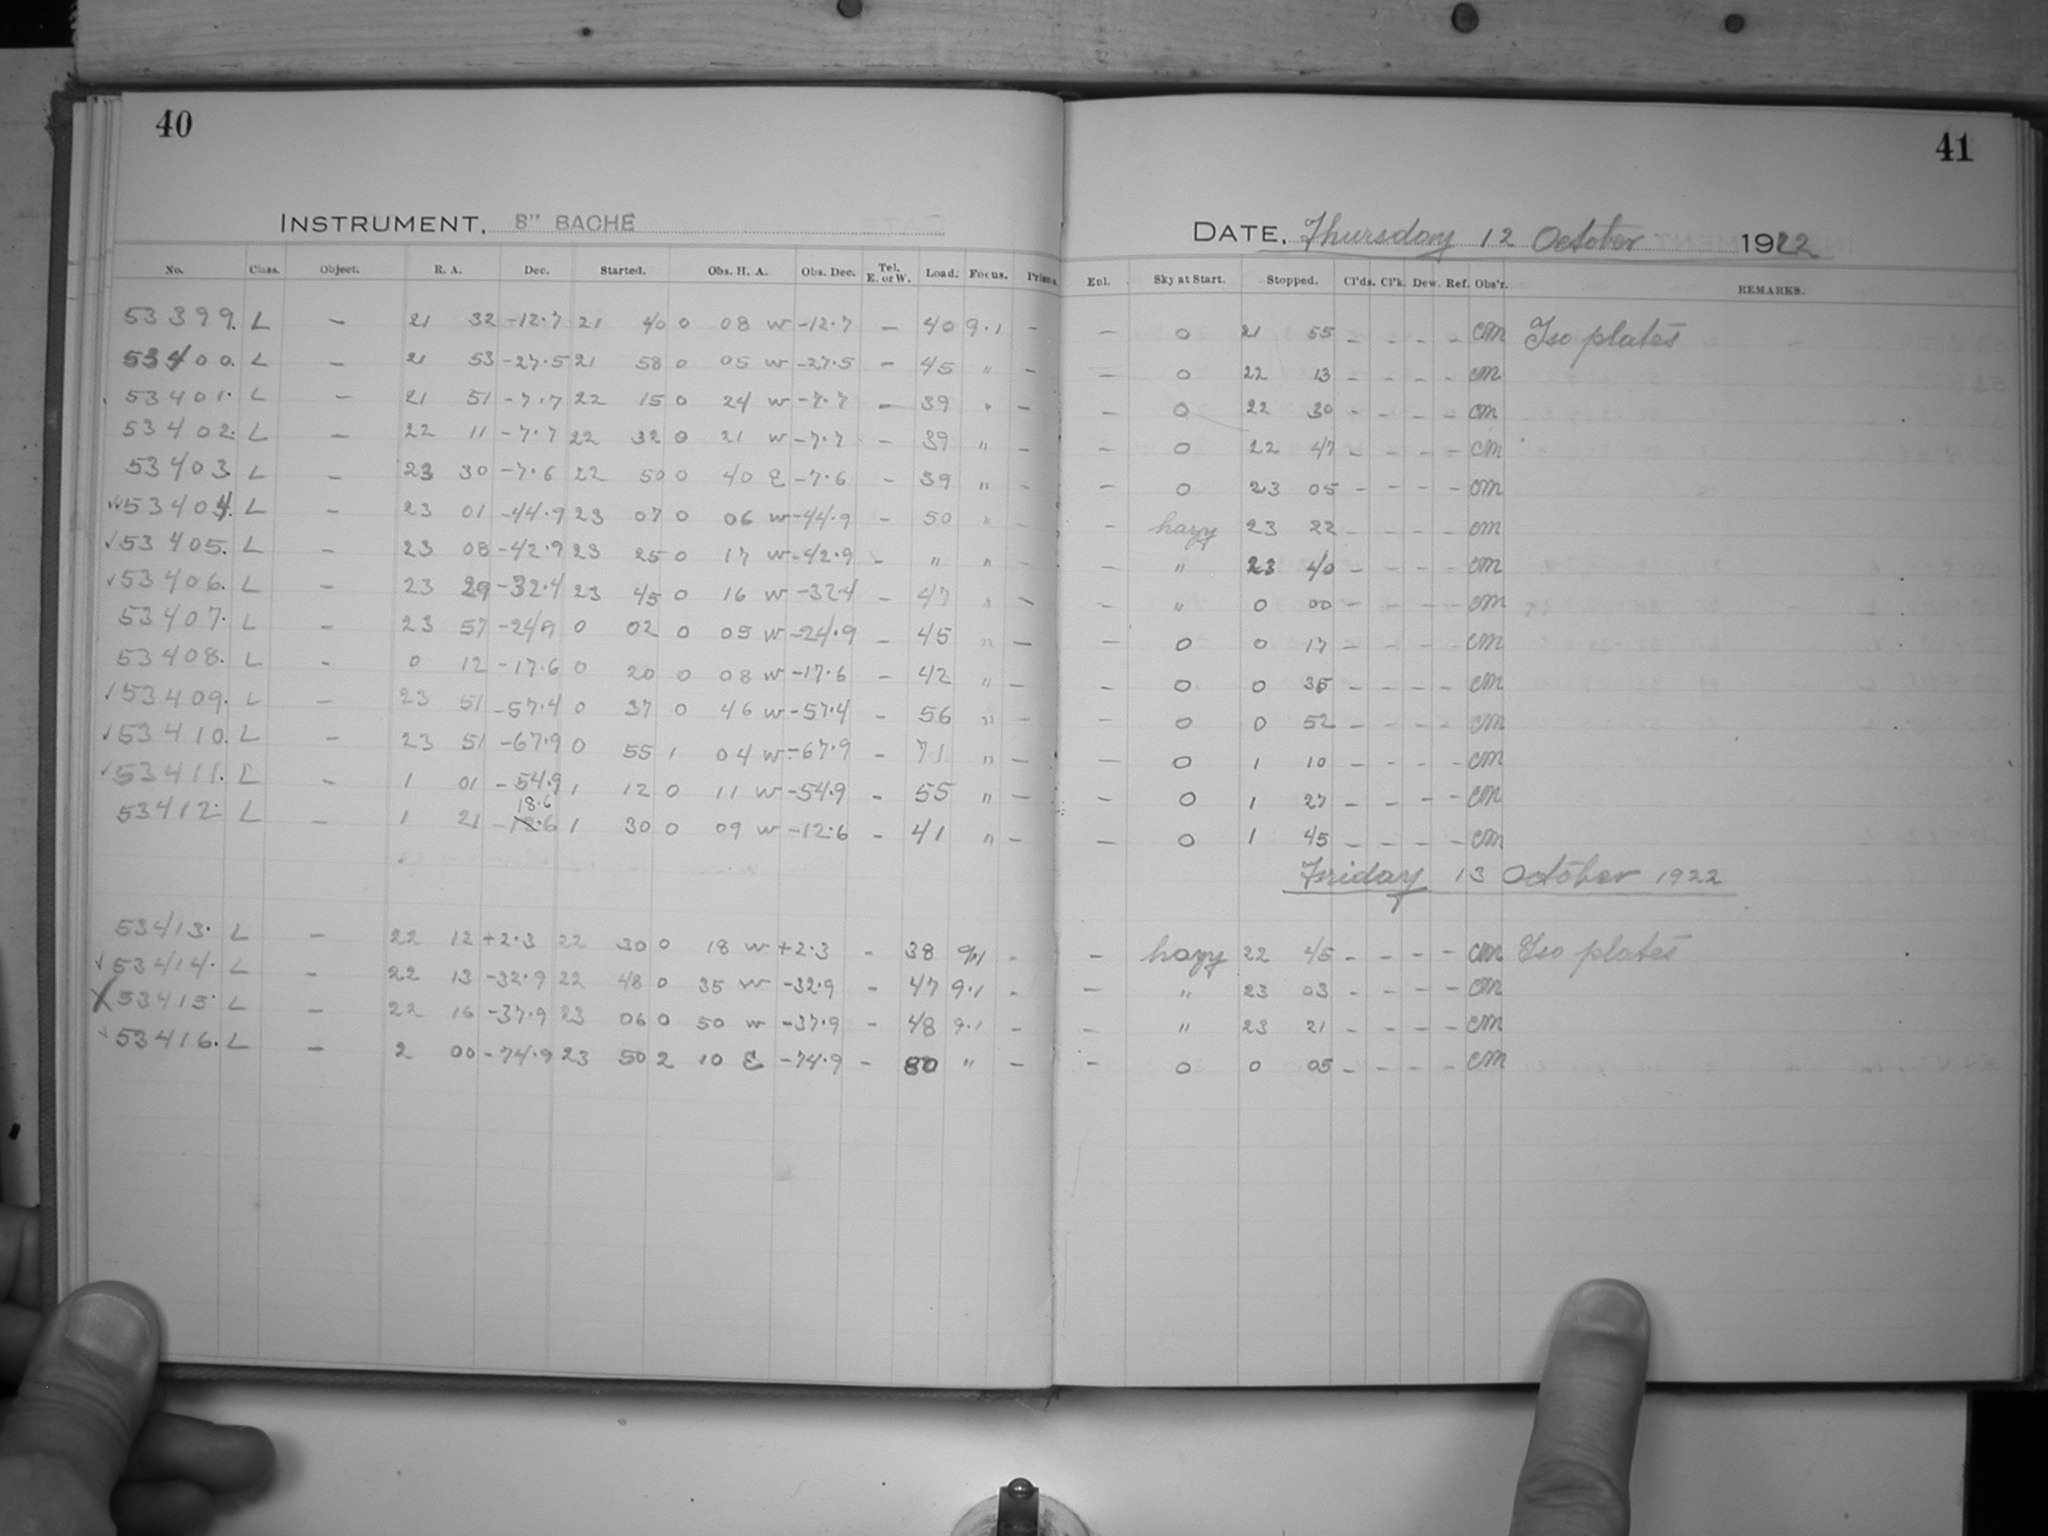 40
INSTRUMENT, 8" BACHE
No. Class. Object. R. A. Dec. Started. Obs. H. A. Obs. Dec. Tel. E. or W. Load. Focus. Prisms.
53399. L - 21 32 -12.7 21 40 0 08 W -12.7 - 40 9.1 -
53400. L - 21 53 -27.5 21 58 0 05 W -27.5 - 45 " -
53401. L - 21 51 -7.7 22 15 0 24 W -7.7 - 39 " -
53402. L - 22 11 -7.7 22 32 0 21 W -7.7 - 39 "
53403. L - 23 30 -7.6 22 50 0 40 E -7.6 - 39 " -
✓53404. L - 23 01 -44.9 23 07 0 06 W -44.9 - 50 " -
✓53405. L - 23 08 -42.9 23 25 0 17 W -42.9 - " "
✓53406. L - 23 29 -32.4 23 45 0 16 W -32.4 - 47 " -
53407. L - 23 57 -24.9 0 02 0 05 W -24.9 - 45 " -
53408. L - 0 12 -17.6 0 20 0 08 W -17.6 - 42 " -
✓53409. L - 23 51 -57.4 0 37 0 46 W -57.4 - 56 " -
✓53410. L - 23 51 -67.9 0 55 1 04 W -67.9 - 71 " -
✓53411. L - 1 01 -54.9 1 12 0 11 W -54.9 - 55 " -
18.6
53412. L - 1 21 -12.6 1 30 0 09 W -12.6 - 41 " -
53413. L - 22 12 +2.3 22 30 0 18 W +2.3 - 38 9.1 -
✓53414. L - 22 13 -32.9 22 48 0 35 W -32.9 - 47 9.1 -
✓53415. L - 22 16 -37.9 23 06 0 50 W -37.9 - 48 9.1 -
✓53416. L - 2 00 -74.9 23 50 2 10 E -74.9 - 80 " -
41
DATE, Thursday 12 October 1922
Enl. Sky at Start. Stopped. Cl'ds. Cl'k. Dew. Ref. Obs'r. REMARKS.
- 0 21 55 - - - - CM Iso plates
- 0 22 13 - - - - CM
- 0 22 30 - - - - CM
- 0 22 47 - - - - CM
- 0 23 05 - - - - CM
- hazy 23 22 - - - - CM
- " 23 40 - - - - CM
- " 0 00 - - - - CM
- 0 0 17 - - - - CM
- 0 0 35 - - - - CM
- 0 0 52 - - - - CM
- 0 1 10 - - - - CM
- 0 1 27 - - - - CM
- 0 1 45 - - - - CM
Friday 13 October 1922
- hazy 22 45 - - - - CM Iso plates
- " 23 03 - - - - CM
- " 23 21 - - - - CM
- 0 0 05 - - - - CM